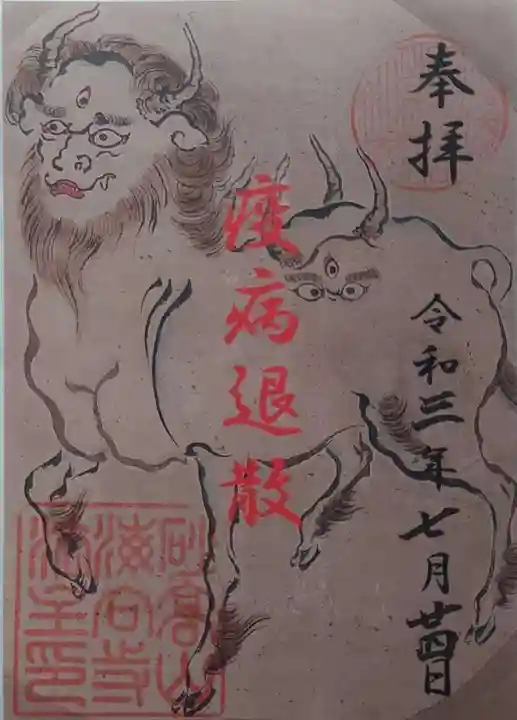 奉拝
令和三年七月廿四日
疫病退散